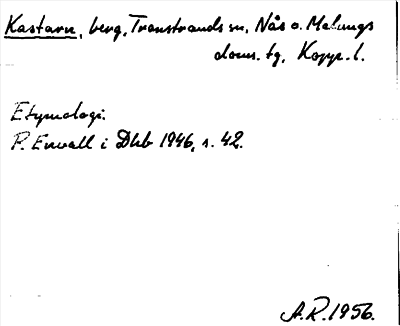 Kastarn, berg, Transtrands sn, Nås o. Malungs
doms. tg, Kopp. l.
Etymologi.
P. Envall i Dhb 1946, s. 42.
A.R. 1956.